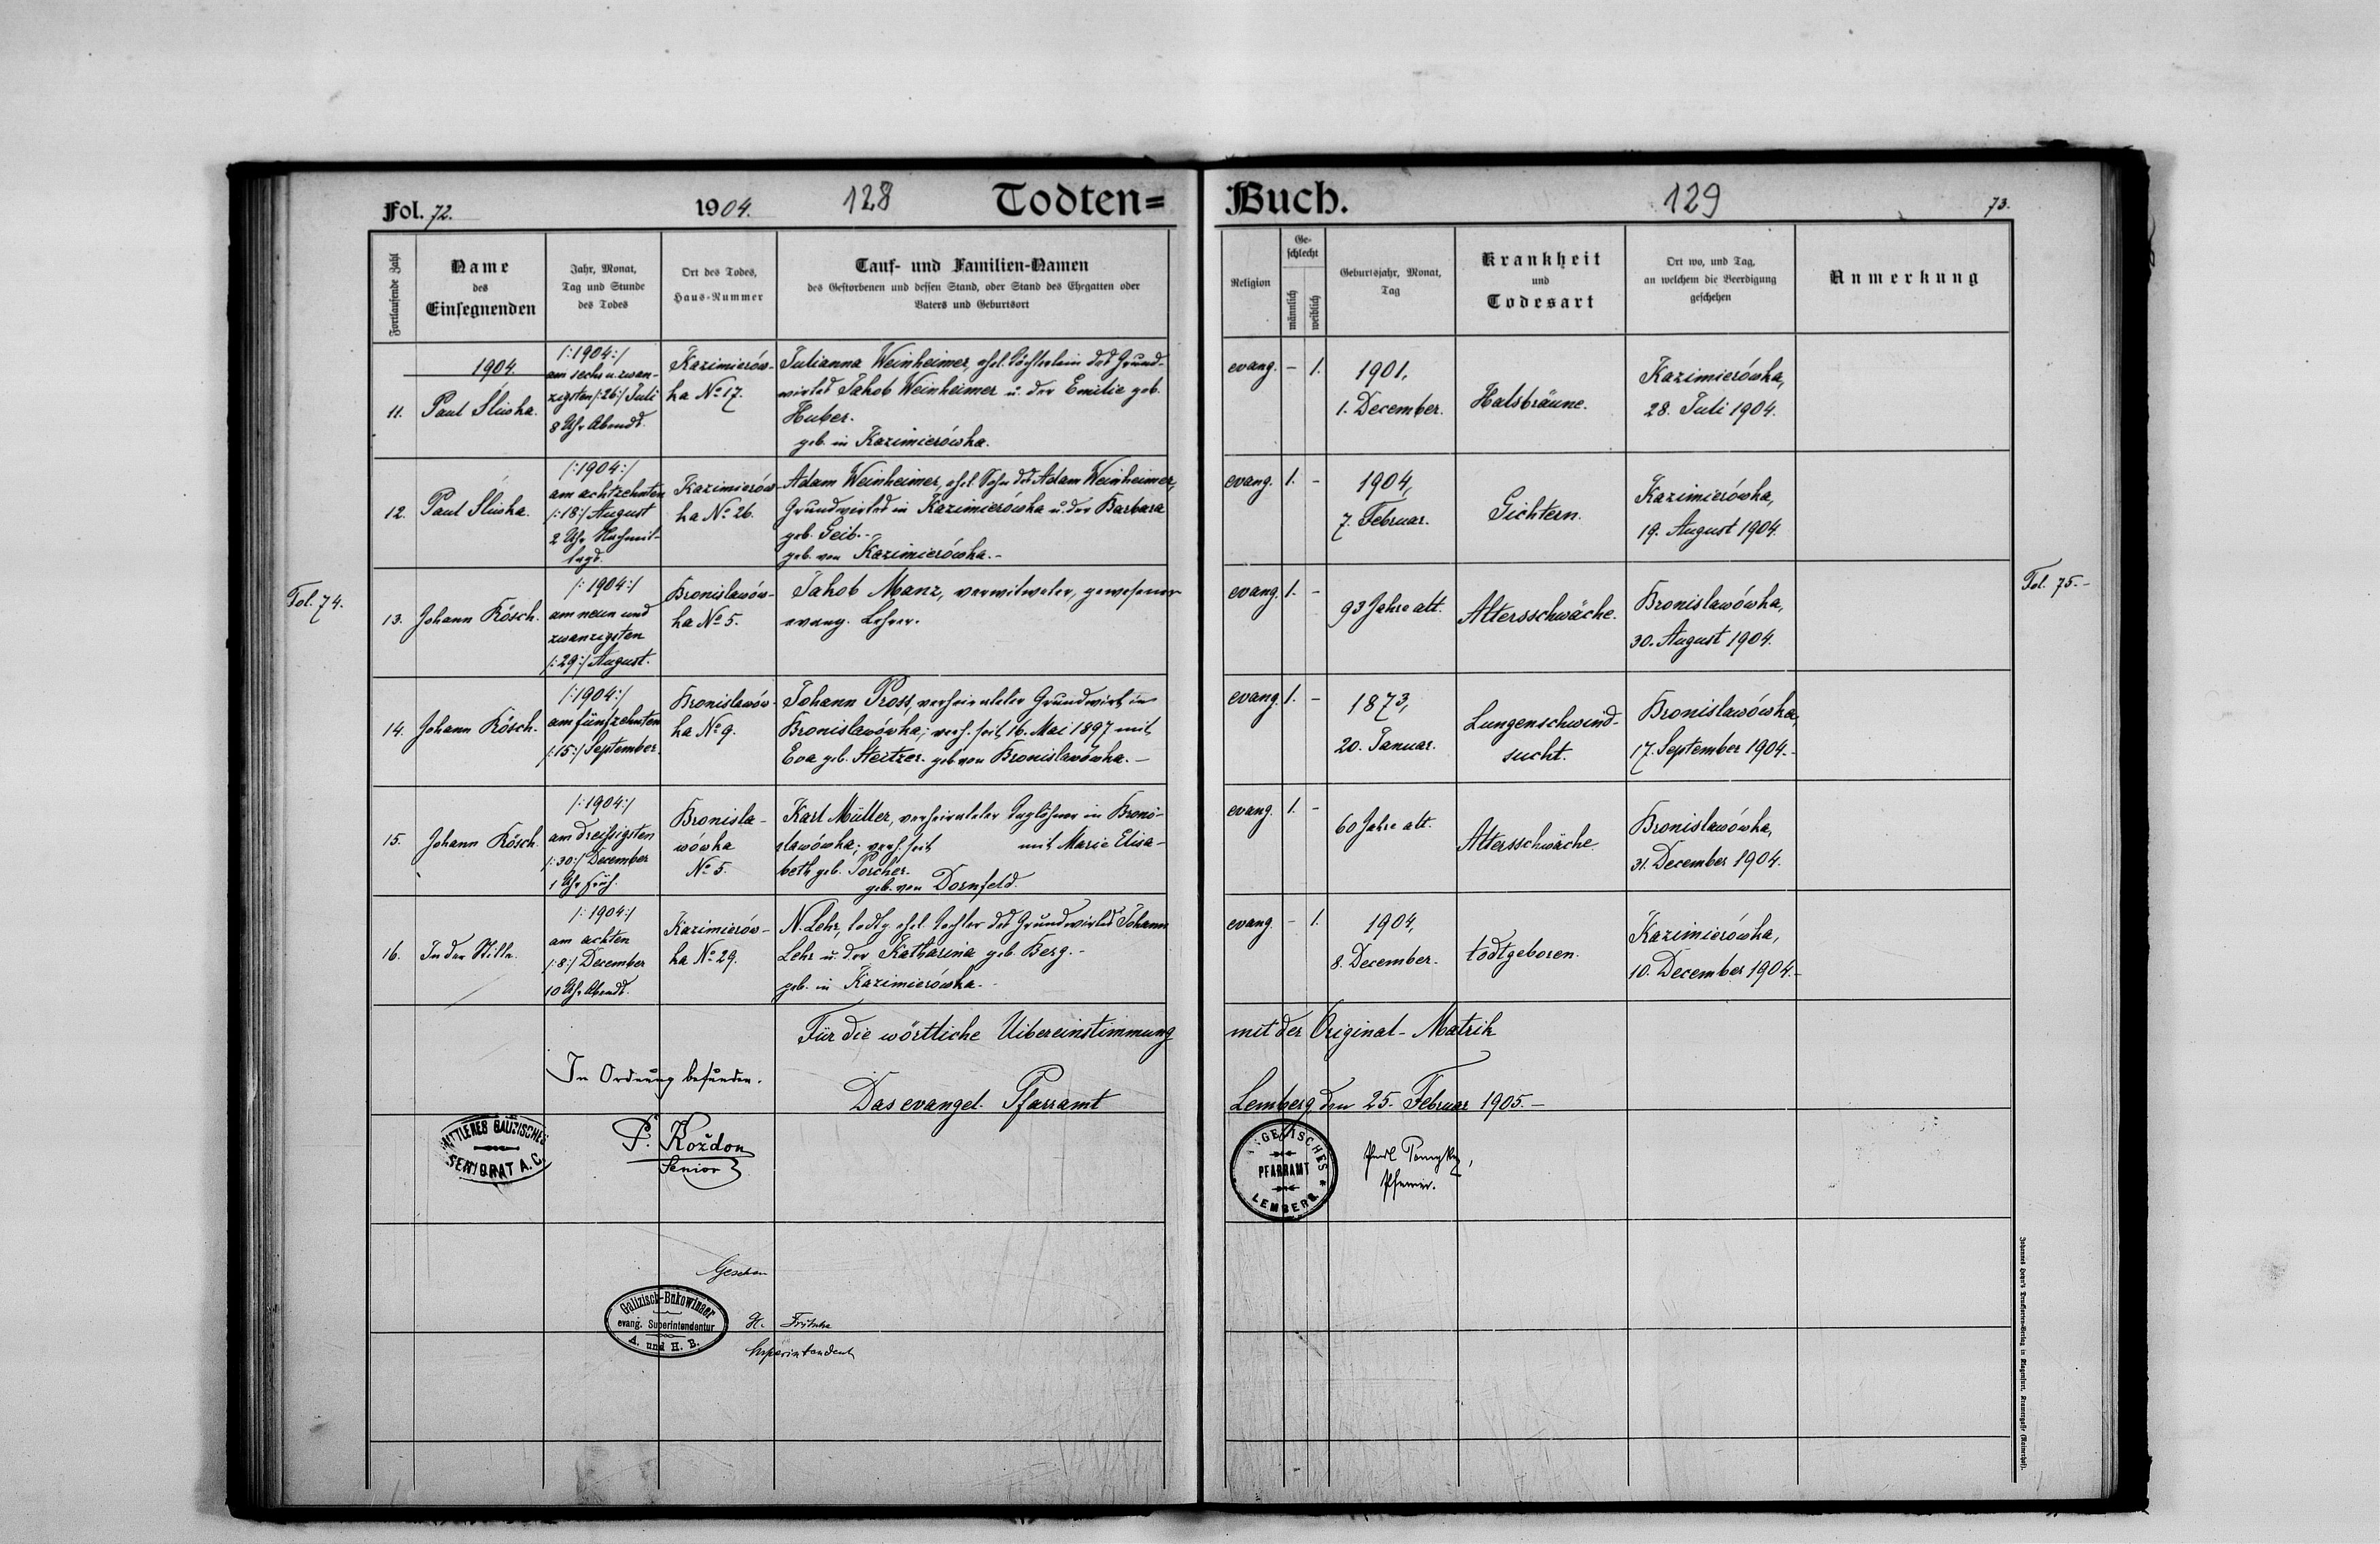 Fol. 72.
1904.
128
Todten=
Buch.
129
73.
Fortlaufende Zahl
Name
des
Einsegnenden
Jahr, Monat,
Tag und Stunde
des Todes
Ort des Todes,
Haus-Nummer
Tauf- und Familien-Namen
des Gestorbenen und dessen Stand, oder Stand des Ehegatten oder
Vaters und Geburtsort
Religion
Ge-
schlecht
männlich
weiblich
Geburtsjahr, Monat,
Tag
Krankheit
und
Todesart
Ort wo, und Tag,
an welchem die Beerdigung
geschehen
Anmerkung
1904.
11.
Paul Sliwka.
/:1904:/
am sechs u. zwan-
zigsten /:26:/ Juli
8 Uhr Abends.
Kazimierów-
ka No 17.
Julianna Weinheimer, ehel. Töchterlein des Grund-
wirtes Jakob Weinheimer u. der Emilie geb.
Huber.
geb. in Kazimierówka.
evang.
-
1.
1901,
1. December.
Halsbräune.
Kazimierówka,
28. Juli 1904.
12.
Paul Sliwka.
/:1904:/
am achtzehnten
/:18:/ August
2 Uhr Nachmit-
tags.
Kazimierów-
ka No 26.
Adam Weinheimer, ehel. Sohn des Adam Weinheimer,
Grundwirtes in Kazimierówka u. der Barbara
geb. Geib.-
geb. von Kazimierówka.-
evang.
1.
-
1904,
7. Februar.
Gichtern.
Kazimierówka,
19. August 1904.
Fol. 74.
13.
Johann Rösch.
/:1904:/
am neun und
zwanzigsten
/:29:/ August.
Bronislawów-
ka No 5.
Jakob Manz, verwitweter, gewesener
evang. Lehrer.
evang.
1.
-
93 Jahre alt.
Altersschwäche.
Bronislawówka,
30. August 1904.
Fol. 75.-
14.
Johann Rösch.
/:1904:/
am fünfzehnten
/:15:/ September.
Bronislawów-
ka No 9.
Johann Pross, verheirateter Grundwirt in
Bronislawówka; verh. seit 16. Mai 1897 mit
Eva geb. Steitzer. geb. von Bronislawówka.-
evang.
1.
-
1873,
20. Januar.
Lungenschwind-
sucht.
Bronislawówka,
17. September 1904.-
15.
Johann Rösch.
/:1904:/
am dreißigsten
/:30:/ December
1 Uhr früh.
Bronisla-
wówka
No 5.
Karl Müller, verheirateter Taglöhner in Broni-
slawówka; verh. seit mit Marie Elisa-
beth geb. Porcher.
geb. von Dornfeld.
evang.
1.
-
60 Jahre alt.
Altersschwäche.
Bronislawówka,
31. December 1904.
16.
In der Stille.
/:1904:/
am achten
/:8:/ December
10 Uhr Abends.
Kazimierów-
ka No 29.
N. Lehr, todtg. ehel. Tochter des Grundwirtes Johann
Lehr u. der Katharina geb. Berg.-
geb. in Kazimierówka.-
evang.
-
1.
1904,
8. December.
todtgeboren.
Kazimierówka,
10. December 1904.-
Für die wörtliche Uibereinstimmung
mit der Original-Matrik
In Ordnung befunden.
Das evangel. Pfarramt
Lemberg den 25. Februar 1905.-
MITTLERES GALIZISCHES
SENIORAT A.C.
P. Kożdon
Senior
PFARRAMT
LEMBERG
Pfarrer.
Gesehen
Galizisch-Bukowinaer
evang. Superintendentur
A. und H. B.
H. Fritsche
Superintendent